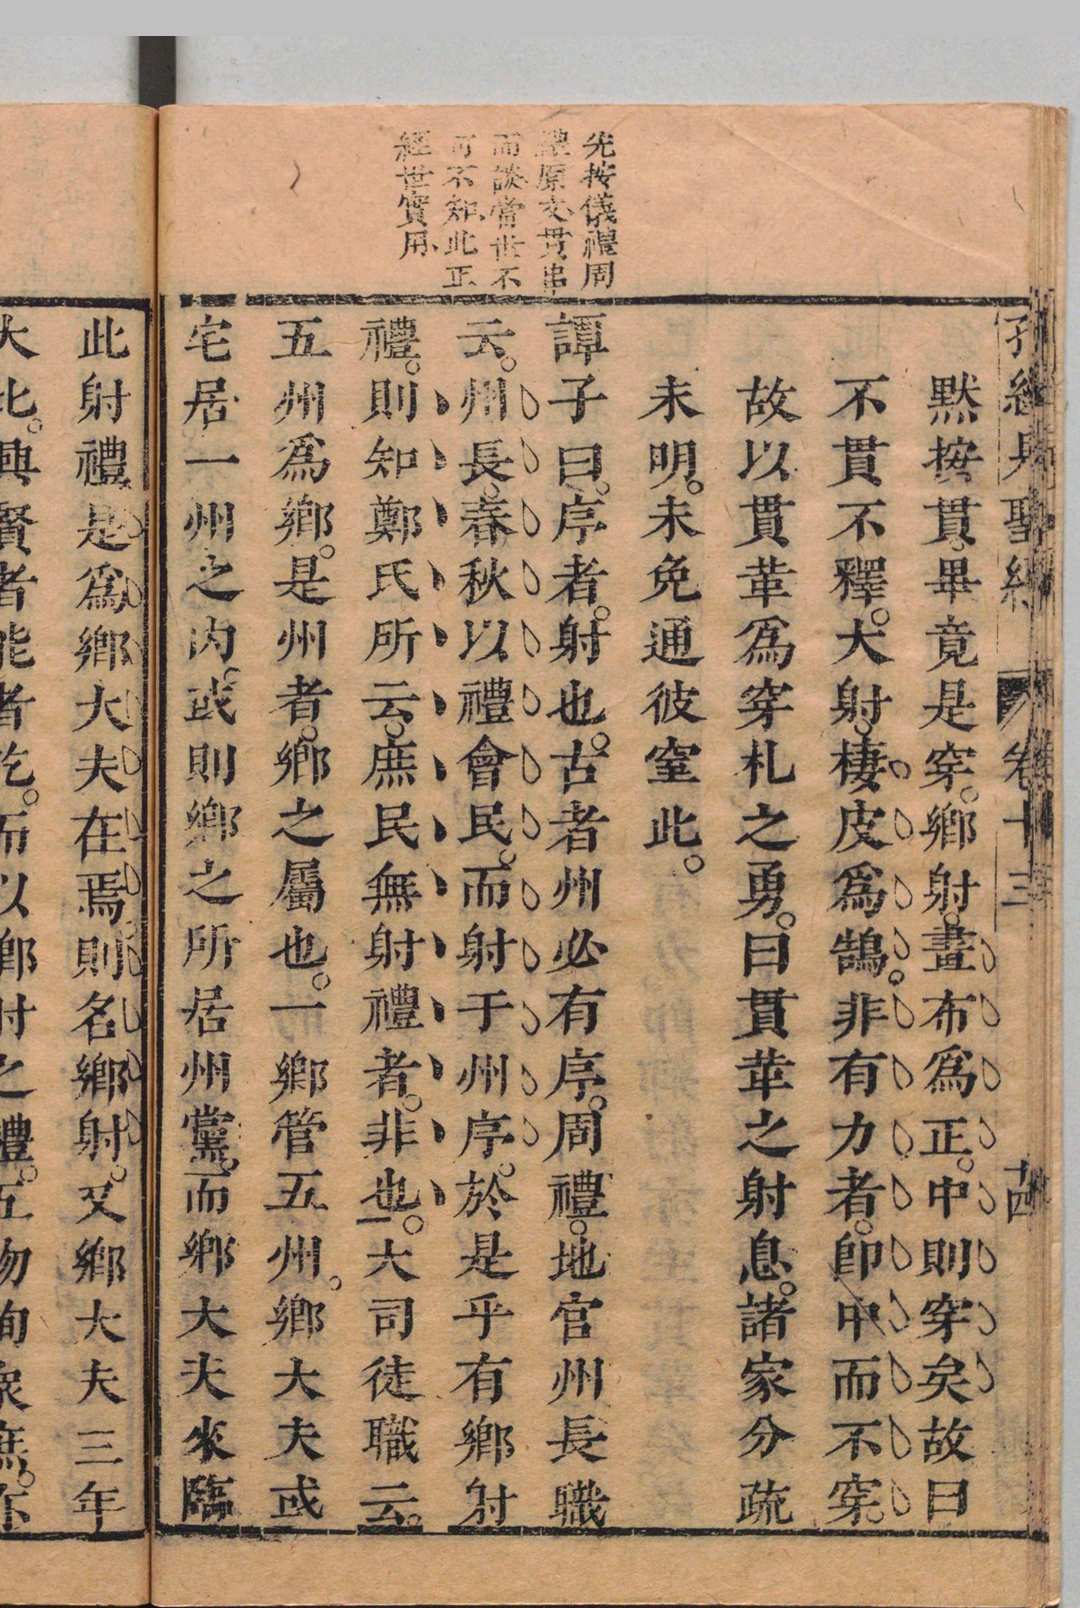 先按儀禮周
禮原文貫串
而談當世不
可不知此正
經世實用
卷十三
十四
默按貫。畢竟是穿。鄉射。畫布為正。中則穿矣故曰
不貫不釋。大射。棲皮為鵠。非有力者。卽中而不穿。
故以貫革為穿札之勇。曰貫革之射息。諸家分疏
未明。未免通彼窒此。
譚子曰。序者。射也。古者州必有序。周禮。地官州長職
云。州長。春秋以禮會民。而射于州序。於是乎有鄉射
禮。則知鄭氏所云。庶民無射禮者。非也。大司徒職云。
五州為鄉。是州者。鄉之屬也。一鄉管五州。鄉大夫或
宅居一州之內。或則鄉之所居州黨。而鄉大夫來臨
此射禮。是為鄉大夫在焉。則名鄉射。又鄉大夫三年
大比。興賢者能者訖。而以鄉射之禮。五物詢衆庶。亦